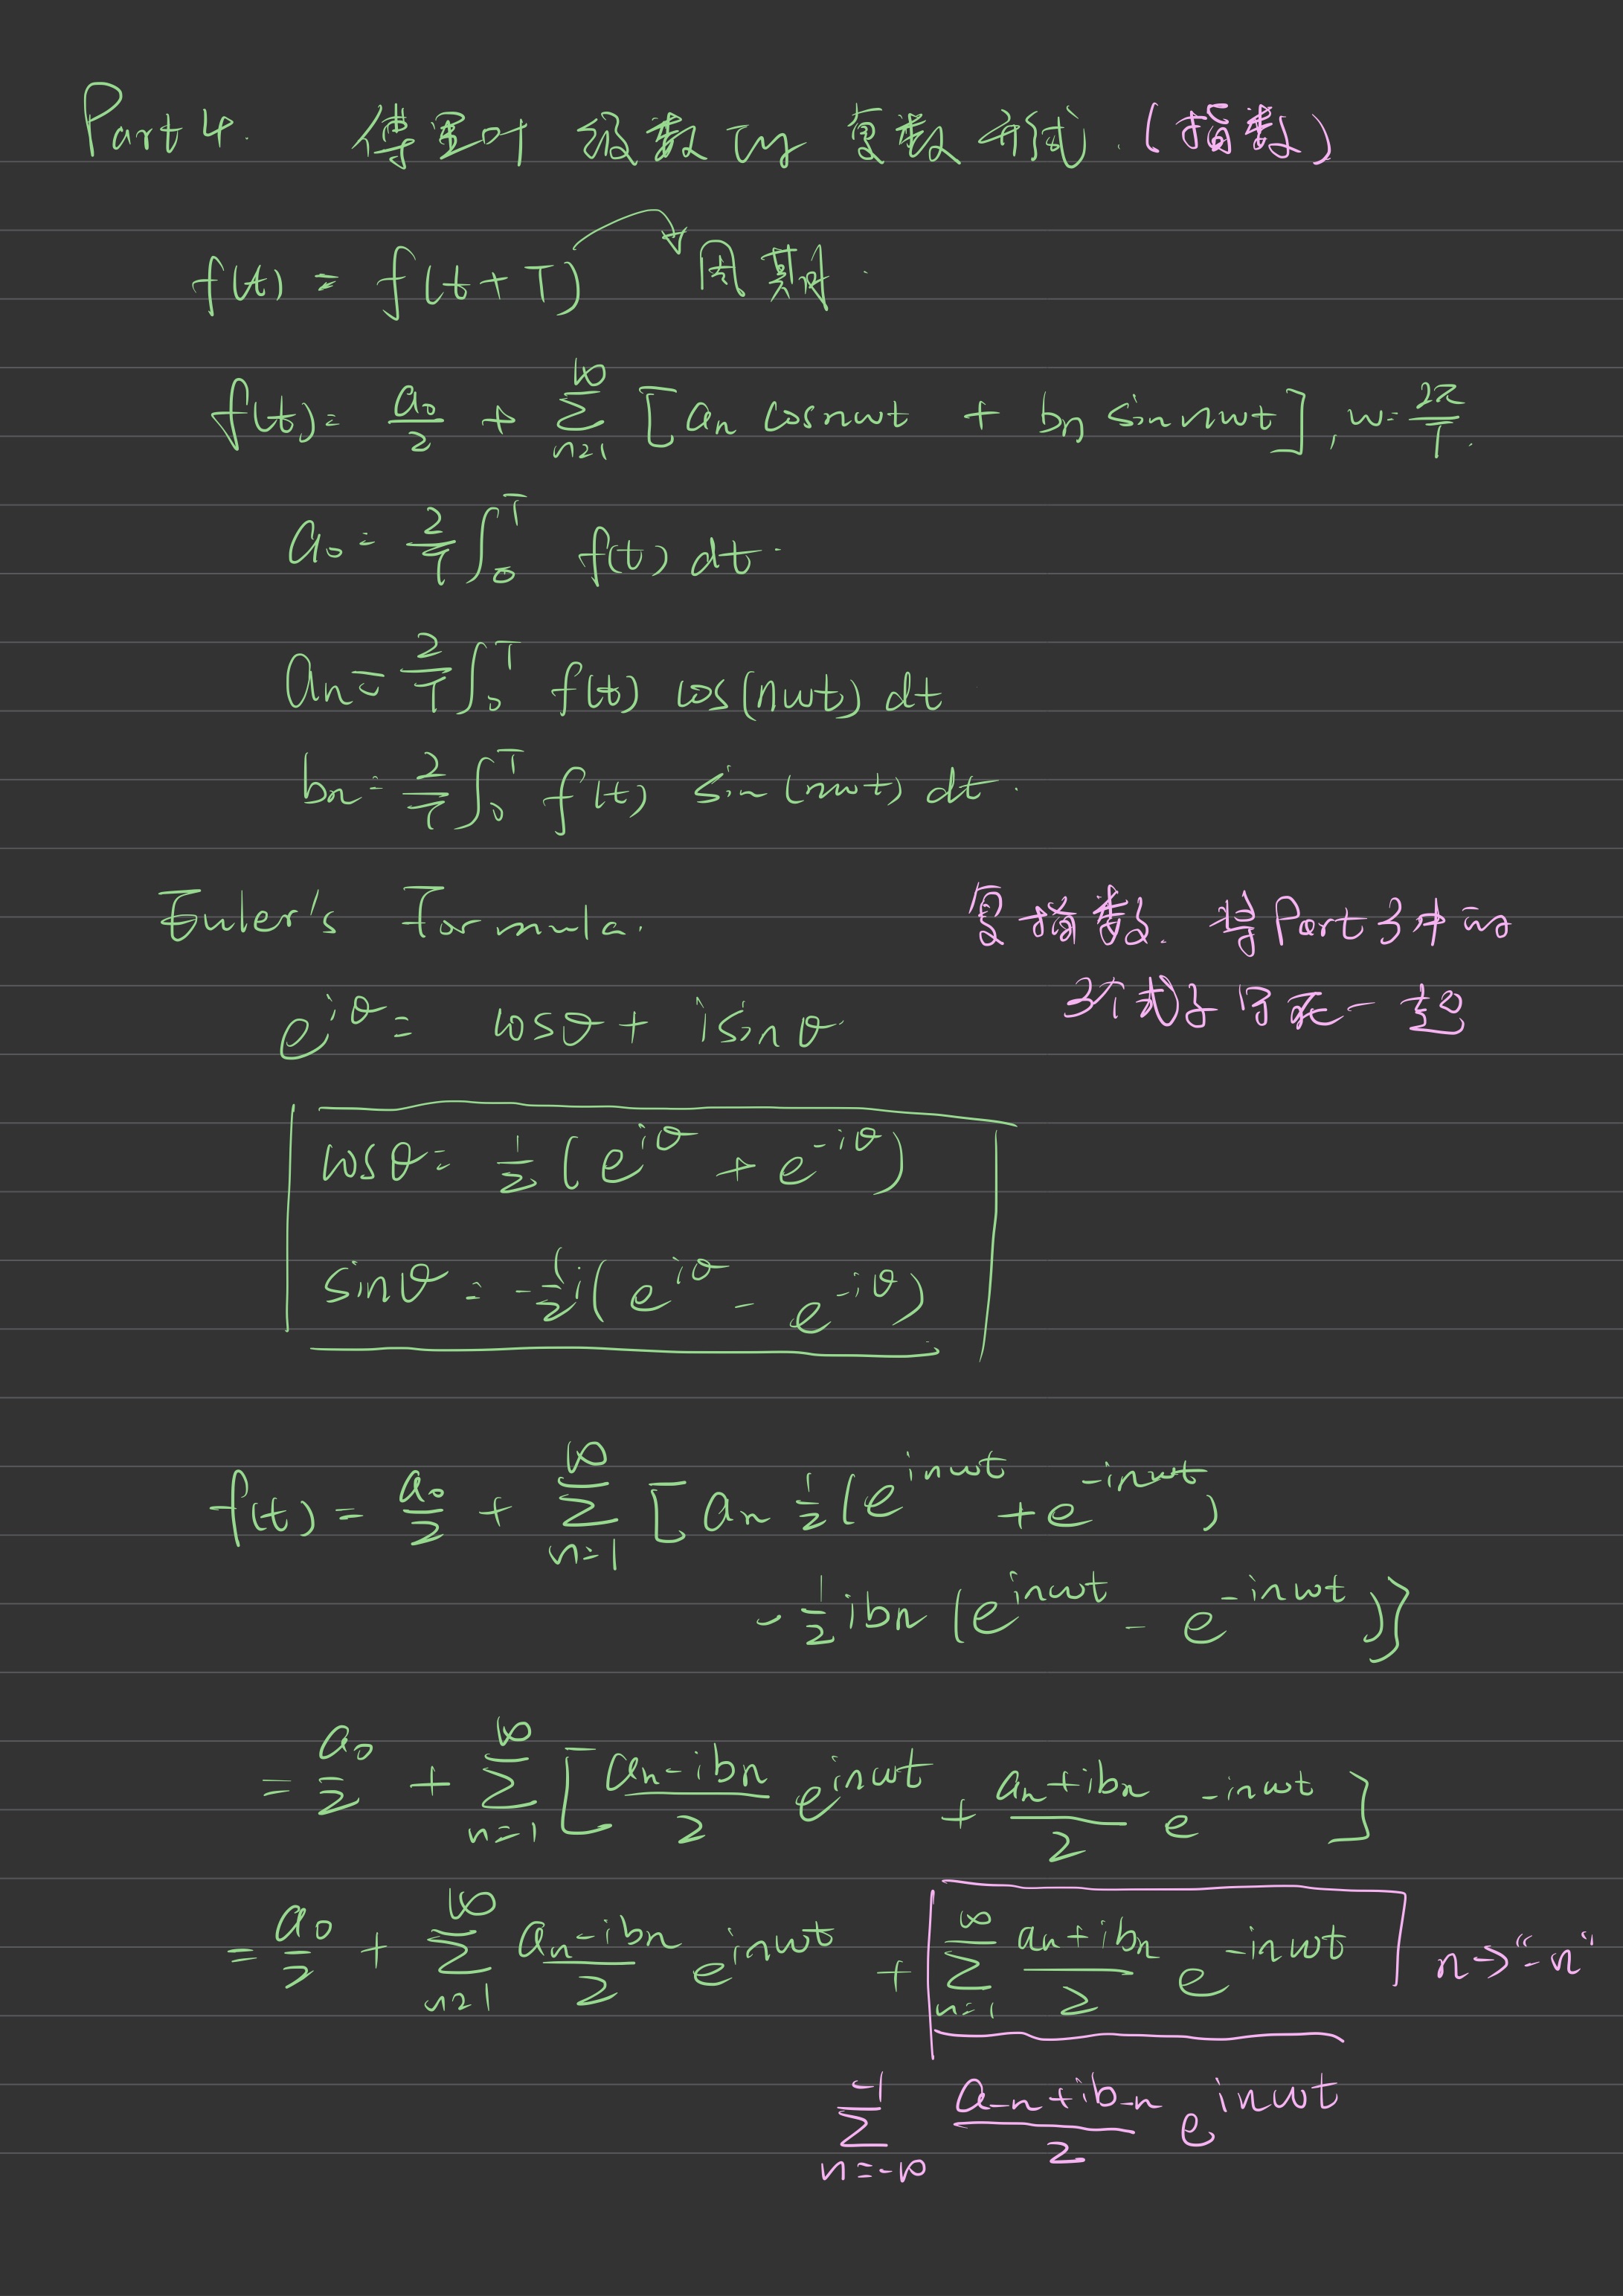 Part 4. 傅里叶级数的复数形式.(指数)
f(t) = f(t+T) 周期.
f(t) = a₀/2 + ∑_{n=1}^{∞} [an cosnωt + bn sin nωt], ω = 2π/T.
a₀ = 2/T ∫₀ᵀ f(t) dt.
an = 2/T ∫₀ᵀ f(t) cos(nωt) dt
bn = 2/T ∫₀ᵀ f(t) sin(nωt) dt.
Euler's Formula.
复指数. 将Part 3中的
3个式子写在一起
e^{iθ} = cosθ + isinθ
cosθ = 1/2 (e^{iθ} + e^{-iθ})
sinθ = -1/2 i(e^{iθ} - e^{-iθ})
f(t) = a₀/2 + ∑_{n=1}^{∞} [an 1/2 (e^{inωt} + e^{-inωt})
- 1/2 ibn (e^{inωt} - e^{-inωt})]
= a₀/2 + ∑_{n=1}^{∞} [(an-ibn)/2 e^{inωt} + (an+ibn)/2 e^{-inωt}]
= a₀/2 + ∑_{n=1}^{∞} (an-ibn)/2 e^{inωt} + ∑_{n=1}^{∞} (an+ibn)/2 e^{-inωt} n->"-n"
∑_{n=-∞}^{-1} (a-n+ib-n)/2 e^{inωt}